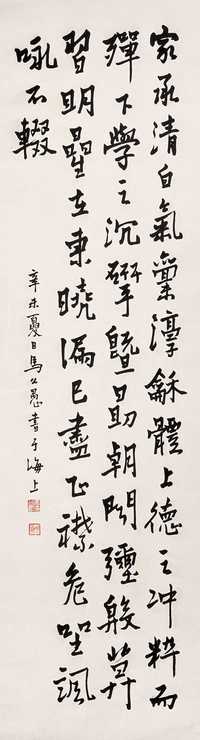 家承清白氣稟淳龢體上德之冲粹而
殫下學之沉研暨旦朝問彌殷葬
習明星在東曉漏已盡正襟危坐諷
咏不輟
辛未夏日馬公愚書于海上